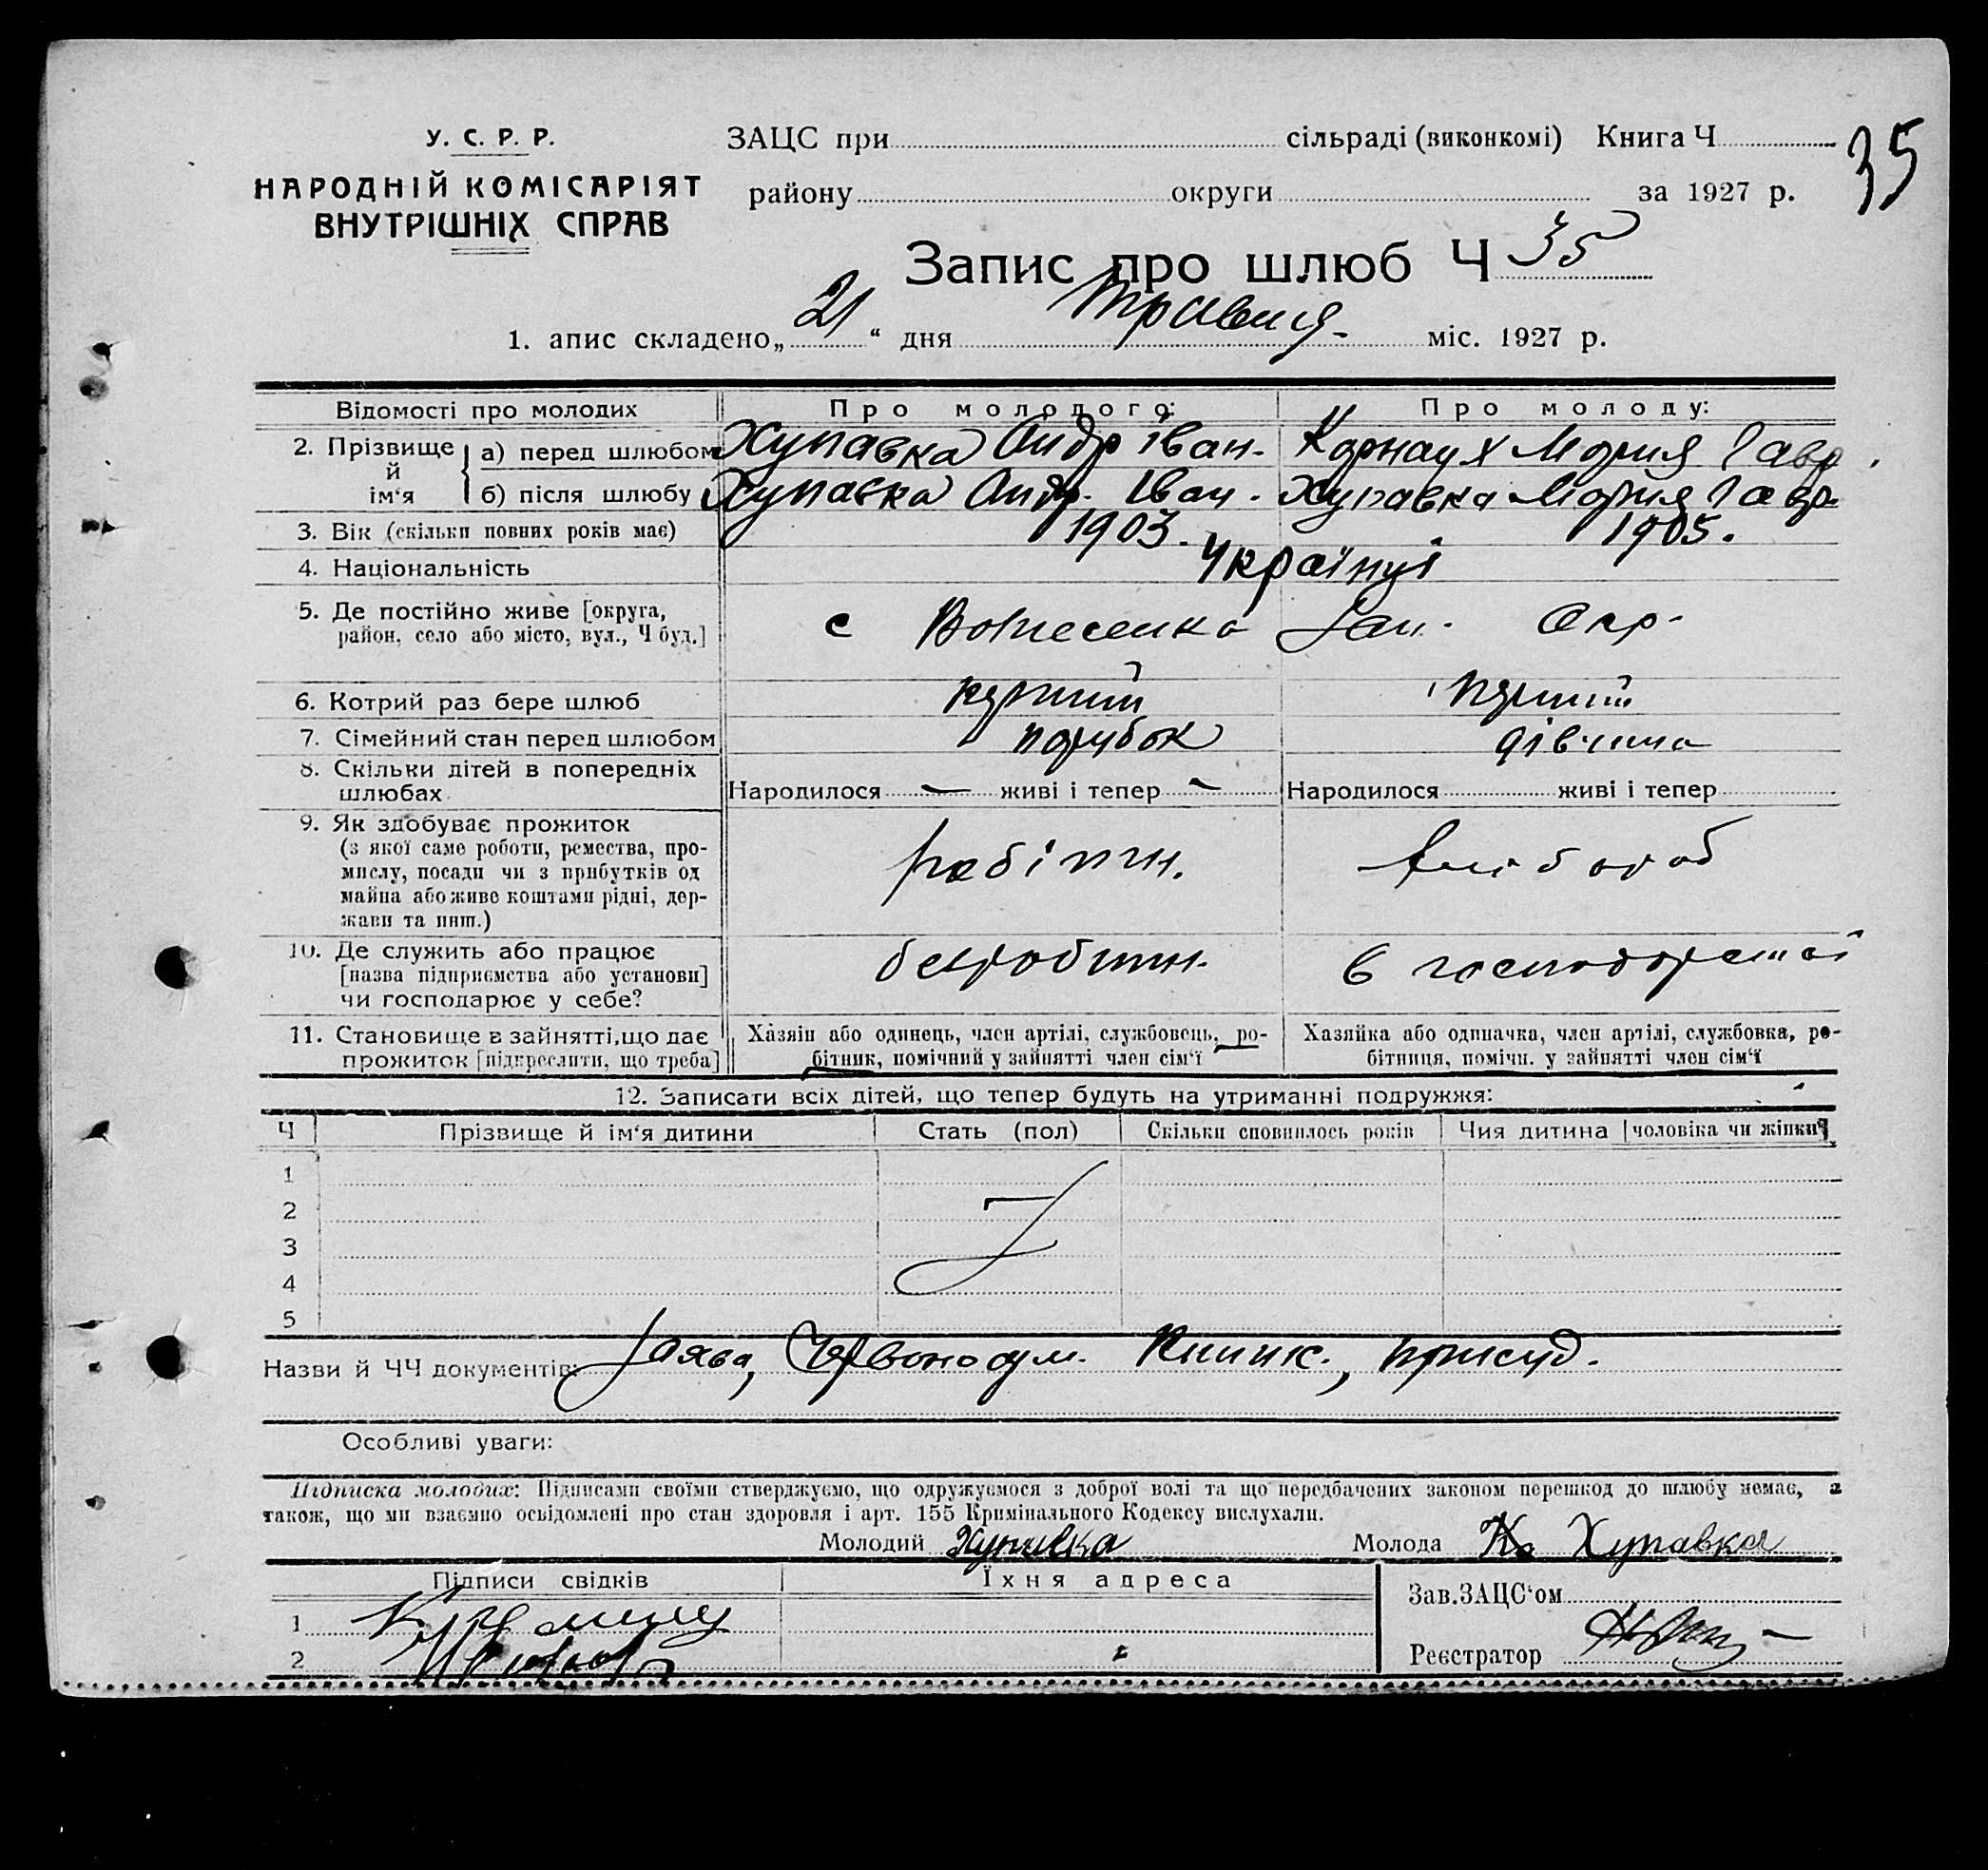 У. С. Р. Р.
НАРОДНІЙ КОМІСАРІЯТ
ВНУТРІШНІХ СПРАВ
ЗАЦС при сільраді (виконкомі) Книга Ч
35
району округи за 1927 р.
Запис про шлюб Ч 35
1. апис складено „21“ дня Травня міс. 1927 р.
Відомості про молодих Про молодого: Про молоду:
2. Прізвище й ім‘я а) перед шлюбом Хупавка Андр Іван. Карнаух Мария Гавр.
б) після шлюбу Хупавка Андр. Іван. Хупавка Мария Гавр.
3. Вік (скільки повних років має) 1903. 1905.
4. Національність Українці
5. Де постійно живе [округа, с Вознесенка Зап. Окр.
район, село або місто, вул., Ч буд.]
6. Котрий раз бере шлюб перший перший
7. Сімейний стан перед шлюбом парубок дівчина
8. Скільки дітей в попередніх
шлюбах Народилося — живі і тепер — Народилося живі і тепер
9. Як здобуває прожиток
(з якої саме роботи, ремества, про- робітн. хлібороб
мислу, посади чи з прибутків од
майна або живе коштами рідні, дер-
жави та инш.)
10. Де служить або працює безробітн. в господарстві
[назва підприємства або установи]
чи господарює у себе?
11. Становище в зайнятті, що дає Хазяін або одинець, член артілі, службовець, ро- Хазяйка або одиначка, член артілі, службовка, ро-
прожиток [підкреслити, що треба] бітник, помічний у зайнятті член сім‘ї бітниця, помічн. у зайнятті член сім‘ї
12. Записати всіх дітей, що тепер будуть на утриманні подружжя:
Ч Прізвище й ім‘я дитини Стать (пол) Скільки сповнилось років Чия дитина [чоловіка чи жінки]
1
2
3
4
5
Назви й ЧЧ документів: Заява, Червоноарм. Книжк., присуд.
Особливі уваги:
Підписка молодих: Підписами своїми стверджуємо, що одружуємося з доброї волі та що передбачених законом перешкод до шлюбу немає, а
також, що ми взаємно освідомлені про стан здоровля і арт. 155 Кримінального Кодексу вислухали.
Молодий Хупавка Молода Ка Хупавка
Підписи свідків Їхня адреса Зав. ЗАЦС‘ом
1
2 Реєстратор